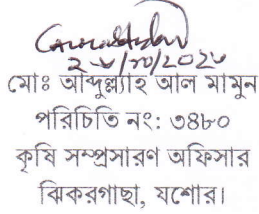 ২৮/১০/২০২৫
মোঃ আব্দুল্ল্যাহ আল মামুন
পরিচিতি নং: ৩৪৮০
কৃষি সম্প্রসারণ অফিসার
ঝিকরগাছা, যশোর।